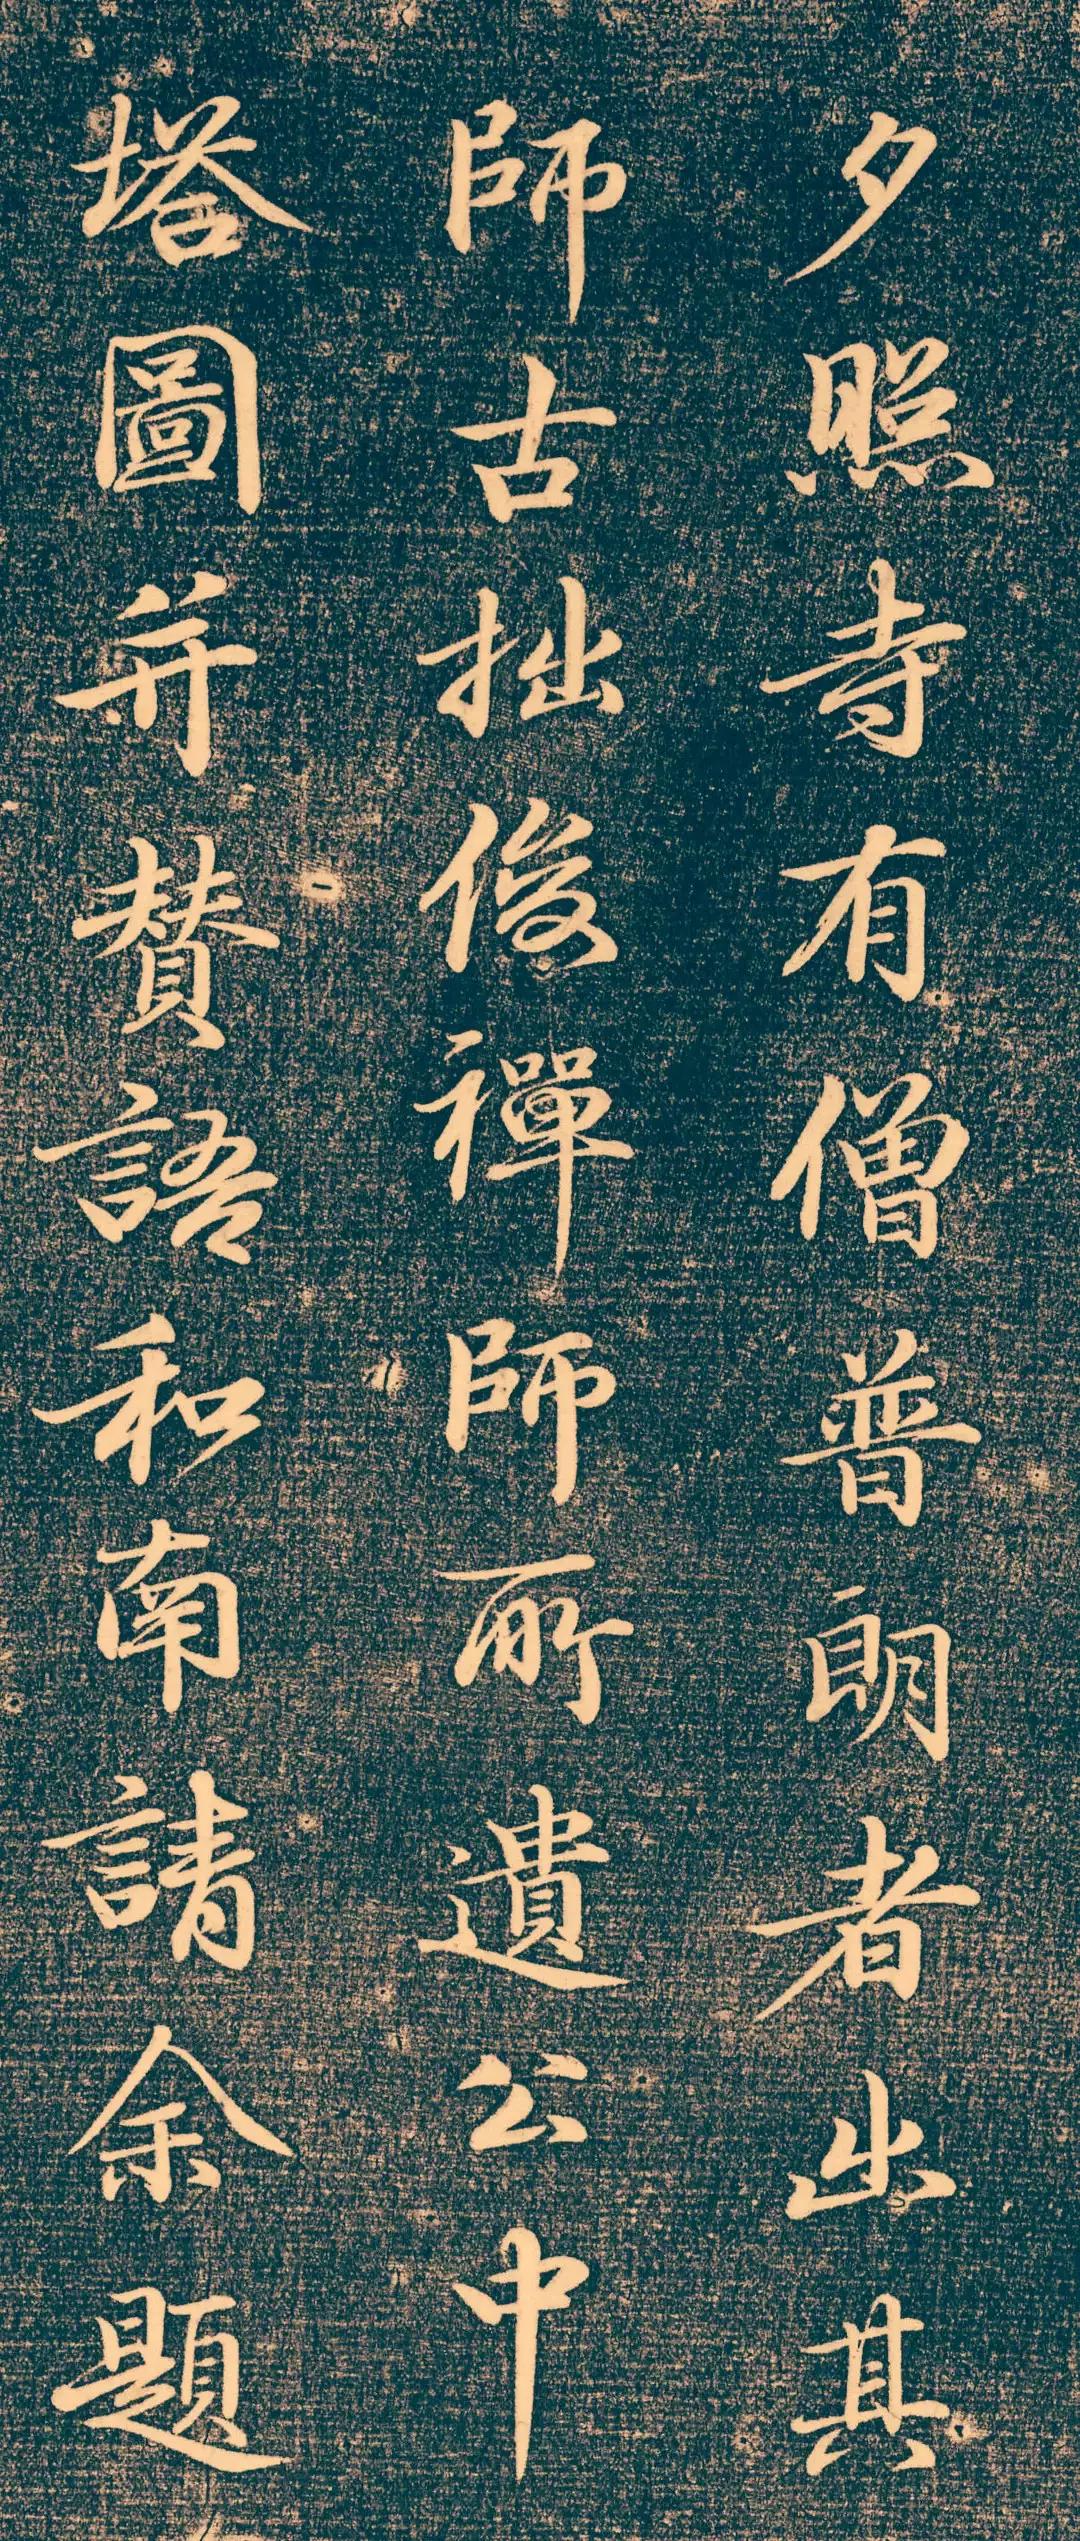 夕照寺有僧普朗者出其
師古拙俊禪師所遺公中
塔圖并賛語和南請余題